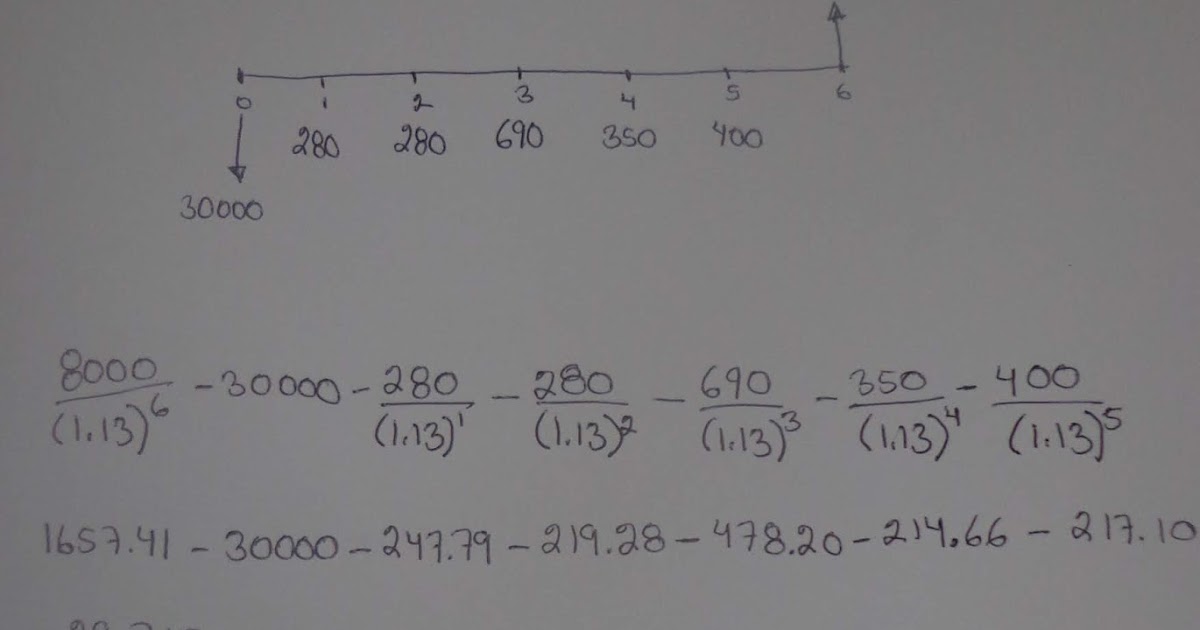 0 1 2 3 4 5 6
280 280 690 350 400
30000
8000/(1.13)^6 - 30000 - 280/(1.13)^1 - 280/(1.13)^2 - 690/(1.13)^3 - 350/(1.13)^4 - 400/(1.13)^5
1657.41 - 30000 - 247.79 - 219.28 - 478.20 - 214.66 - 217.10